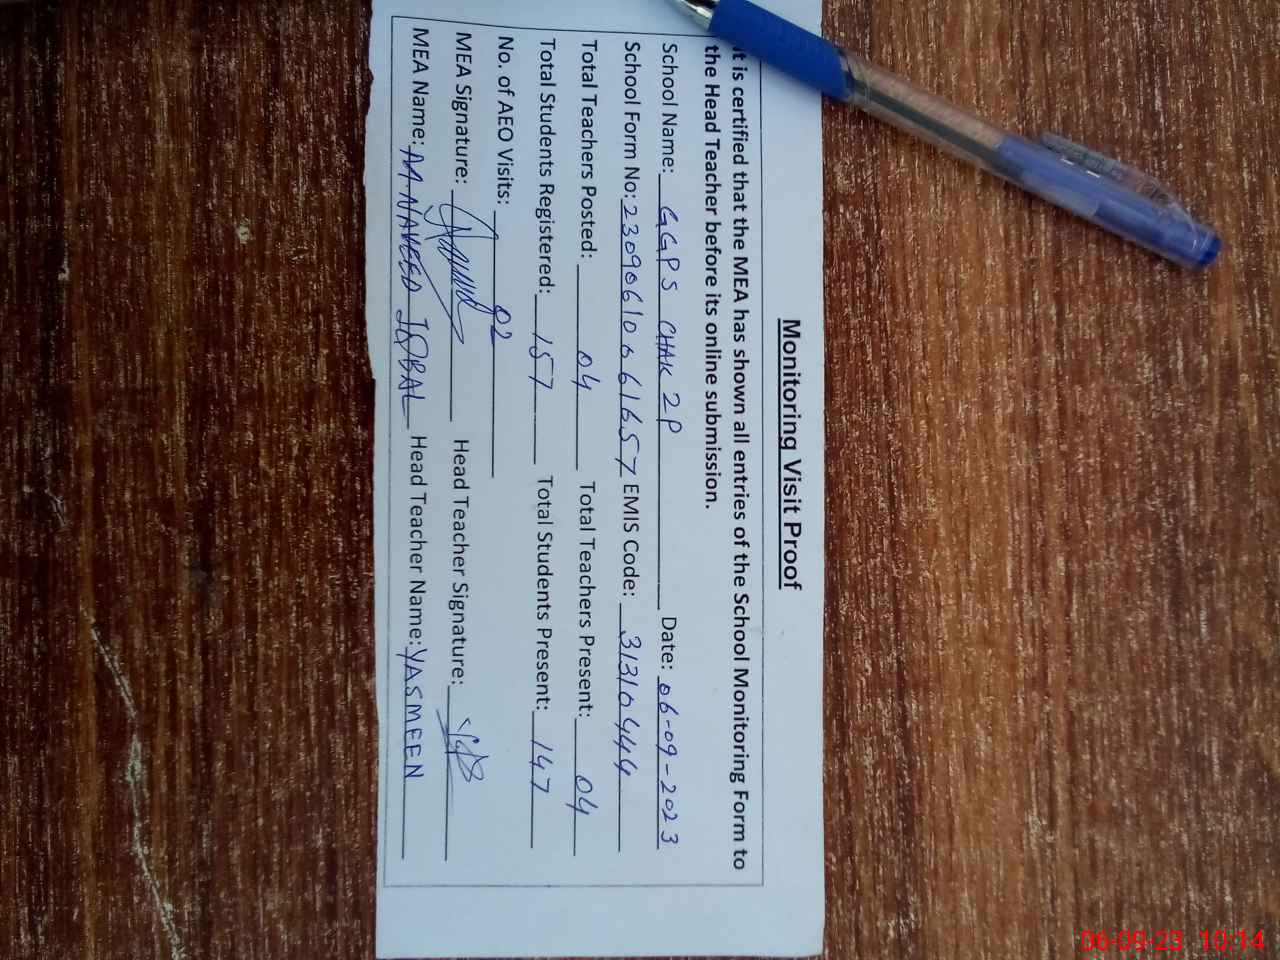 Monitoring Visit Proof
It is certified that the MEA has shown all entries of the School Monitoring Form to
the Head Teacher before its online submission.
School Name: GGPS CHAK 2P Date: 06-09-2023
School Form No: 23090610661657 EMIS Code: 31310444
Total Teachers Posted: 04 Total Teachers Present: 04
Total Students Registered: 157 Total Students Present: 147
No. of AEO Visits: 02
MEA Signature: Head Teacher Signature:
MEA Name: M NAVEED IQBAL Head Teacher Name: YASMEEN
06-09-23 10:14